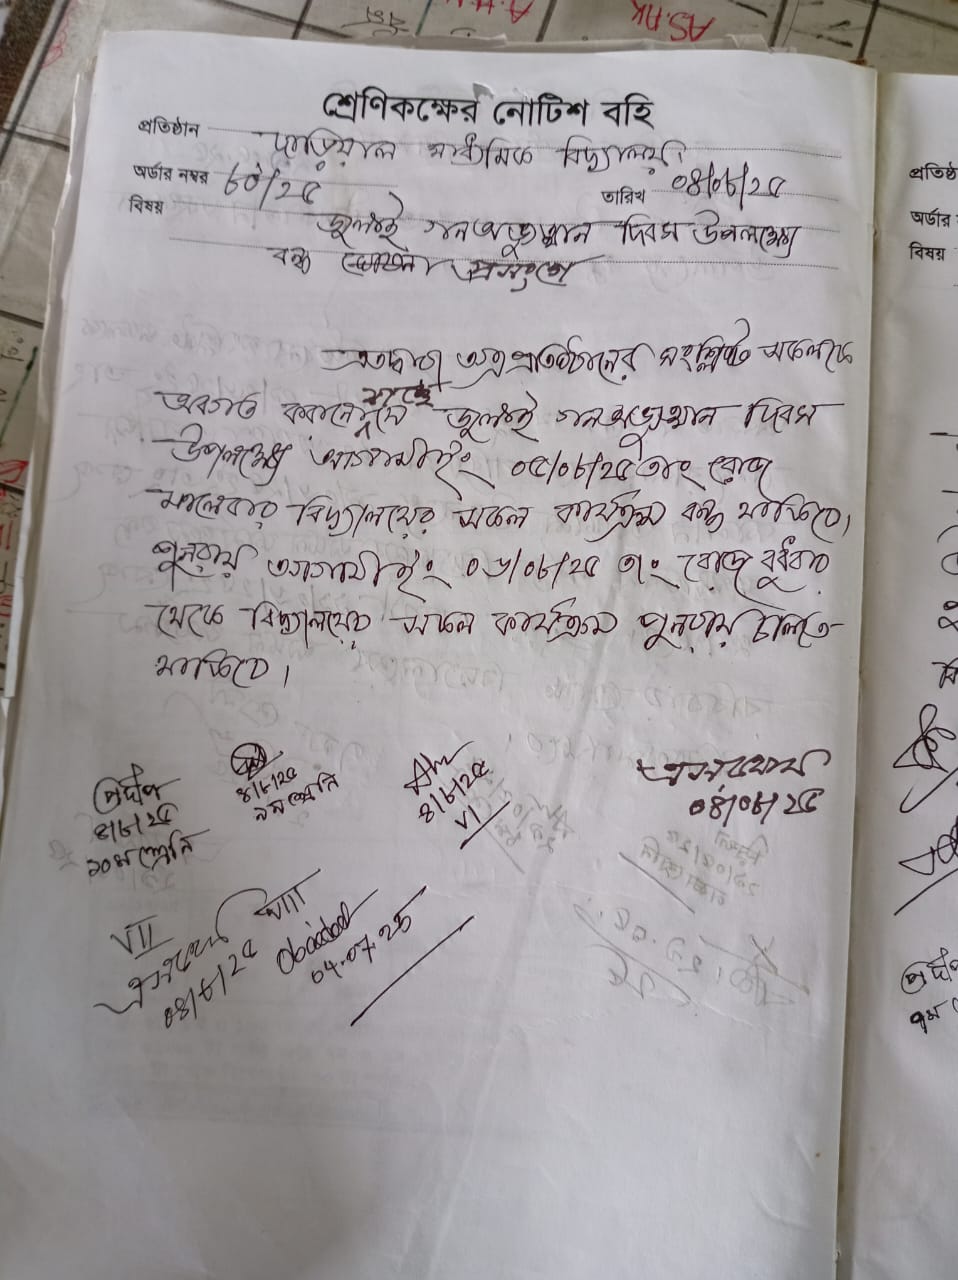 শ্রেণিকক্ষের নোটিশ বহি
প্রতিষ্ঠান দাড়িয়াল মাধ্যমিক বিদ্যালয়।
অর্ডার নম্বর ৮০/২৫ তারিখ ০৪/০৮/২৫
বিষয় জুলাই গনঅভ্যুত্থান দিবস উপলক্ষ্যে
বন্ধ ঘোষনা প্রসংগে
এতদ্বারা অত্র প্রতিষ্ঠানের সংশ্লিষ্ট সকলকে
অবগত করানো যাচ্ছে যে জুলাই গনঅভ্যুত্থান দিবস
উপলক্ষ্যে আগামী ইং ০৫/০৮/২৫ তাং রোজ
মঙ্গলবার বিদ্যালয়ের সকল কার্যক্রম বন্ধ থাকিবে।
পুনরায় আগামী ইং ০৬/০৮/২৫ তাং রোজ বুধবার
থেকে বিদ্যালয়ের সকল কার্যক্রম পুনরায় চলিতে
থাকিবে।
প্রদীপ
৪/৮/২৫
১০ম শ্রেনি
৪/৮/২৫
৯ম শ্রেনি
৪/৮/২৫
VI
০৪/০৮/২৫
VII
০৪/৮/২৫
VIII
Obaidul
04.07.25
প্রতিষ্ঠ
অর্ডার
বিষয়
প্রদীপ